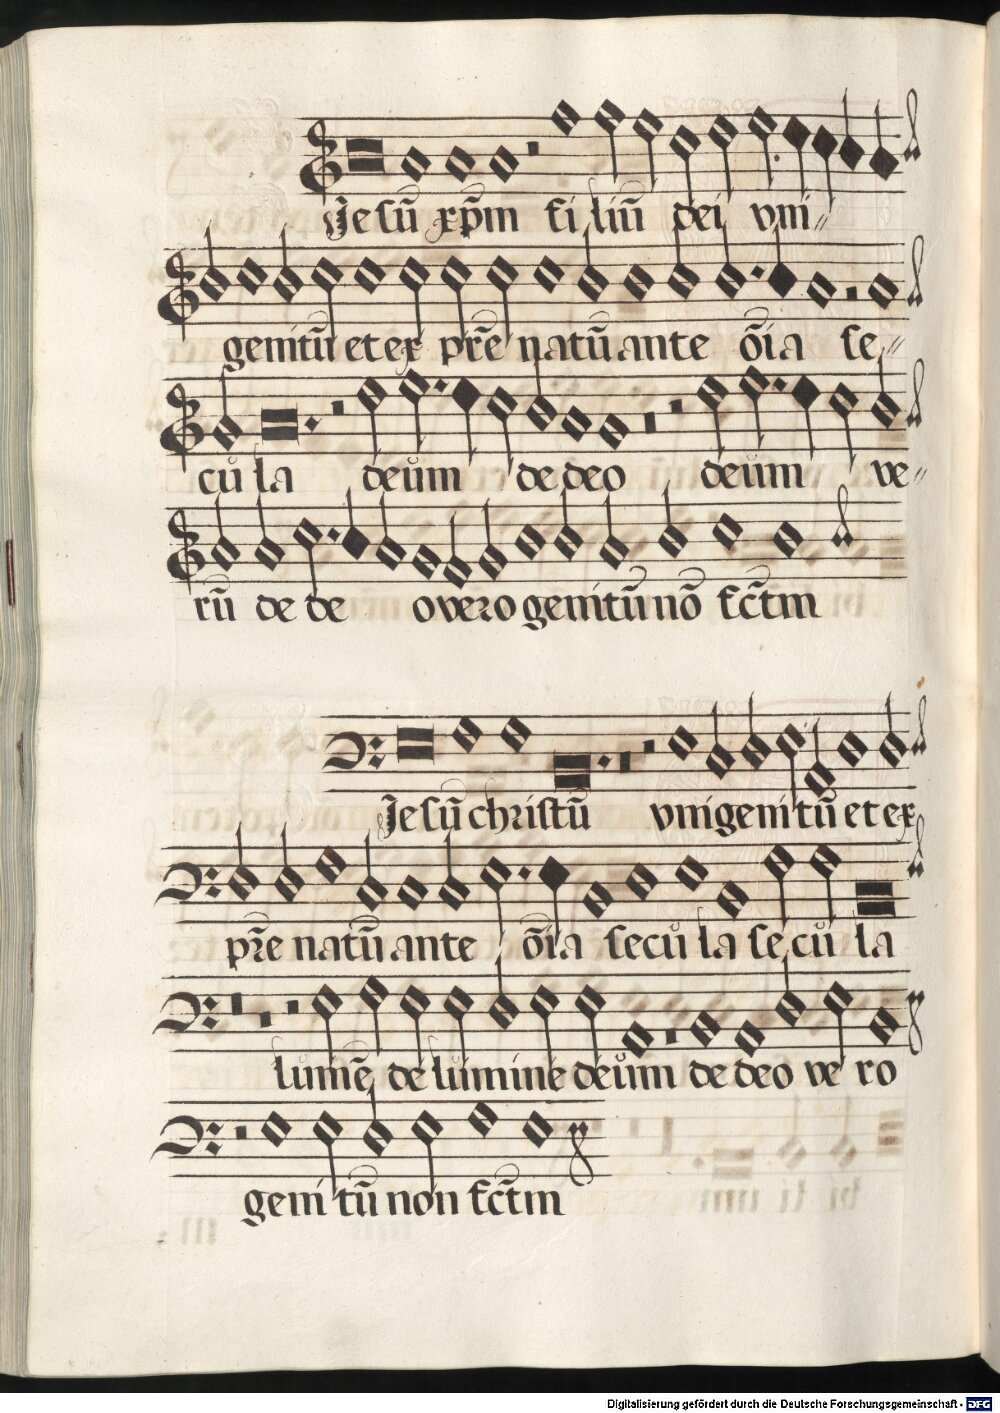 Jesū xp̄m fi liū dei vni〃
genitū et ex pr̄e natū ante ōia se〃
cu la deum de deo deum ve〃
rū de de o vero genitū nō fc̄tm
Jesū christū vnigenitū et ex
pr̄e natū ante ōia secu la se cu la
lumē de lumine deum de deo ve ro
geni tū non fc̄tm
Digitalisierung gefördert durch die Deutsche Forschungsgemeinschaft - DFG